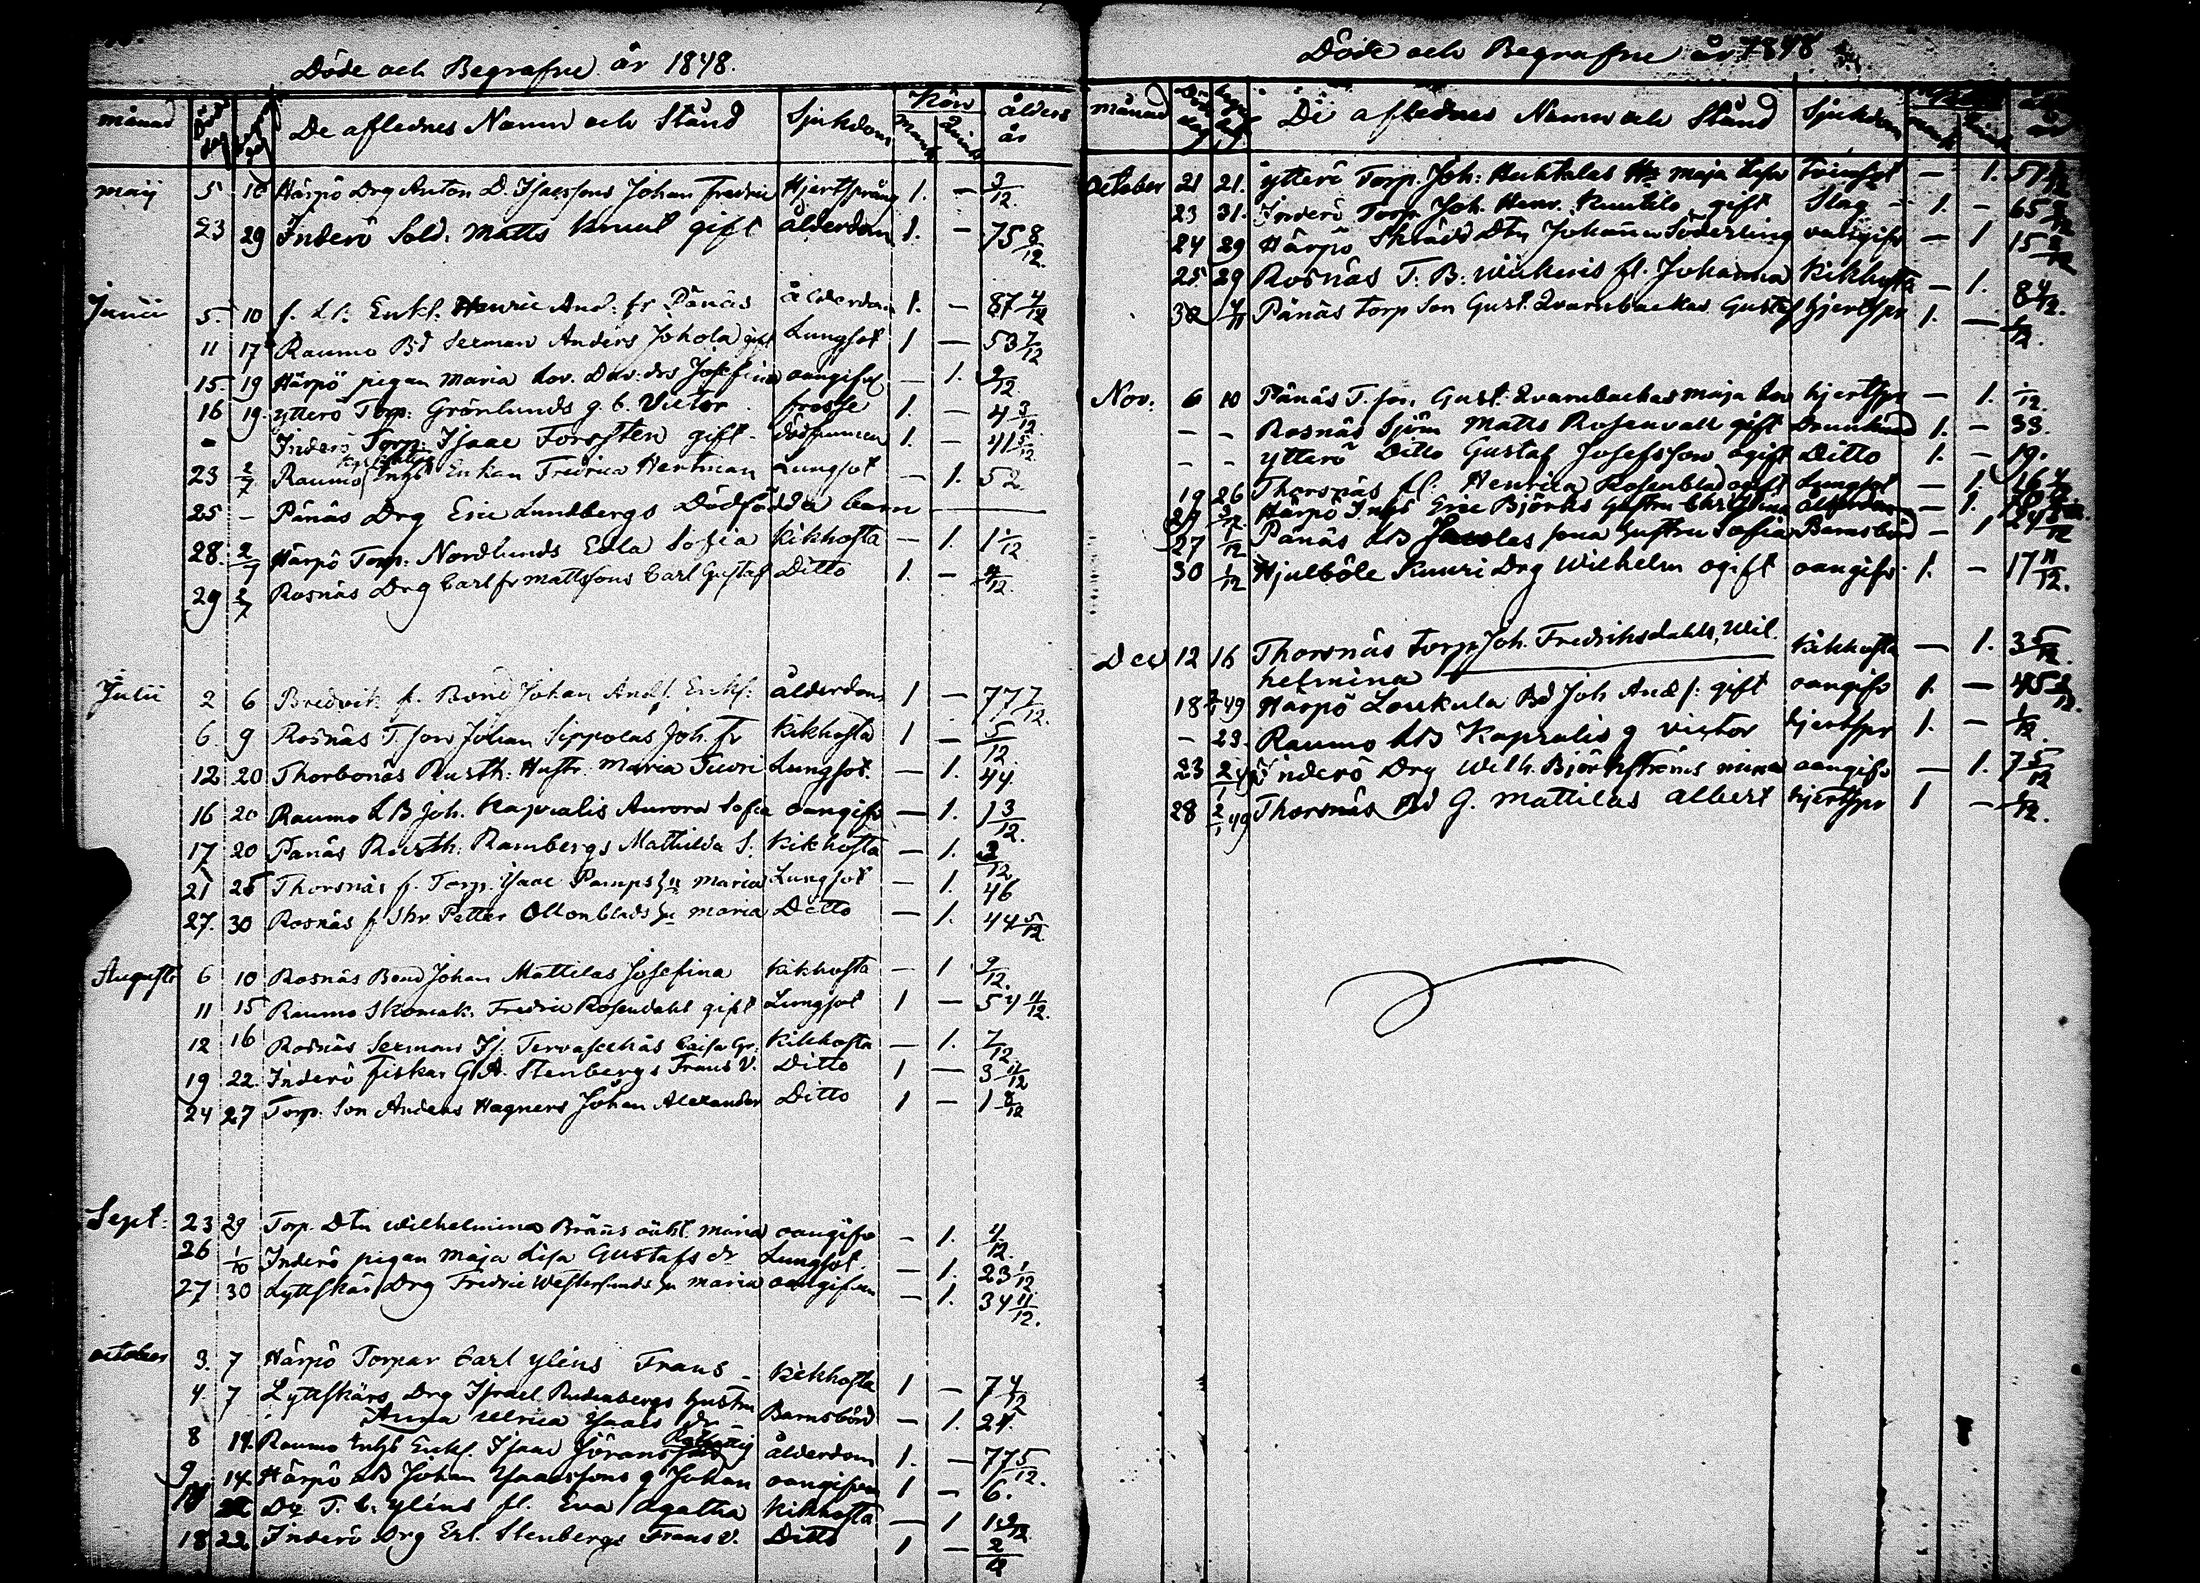 Döde och Begrafne år 1848.
månad Död dag De aflednes Namn och Stånd Sjukdom Kön ålders
mank qvink år
maij 5 10 Härpö Drg Anton D. Isacssons Johan Fredric Hjertsprång 1. — 3/12.
23 29 Inderö Sold: Matts Knuut gift ålderdom 1. — 75 8/12.
Junii 5. 10 f. LB. Enkl: Henric And: fr Pänäs Ålderdom 1. — 87 4/12
11 17 Raumo Bd Seeman Anders Johola gift Lungsot 1 — 53 7/12
15. 19 Härpö pigan Maria Lov. Dav: drs Josefina oangifvel — 1. 9/12.
16 19. ytterö Torp: Grönlunds g. b. Victor frosse 1. — 4 3/12
- Inderö Torp: Isaac Forssten gift - dödfunnen 1. — 41 5/12.
23 2/7 Raumo Inhs Enkan Fredrica Hertman Lungsot — 1. 52
25 — Pänäs Drg Eric Lundbergs Dödfödda barn
28. 2/7 Härpö Torp: Nordlunds Edla Sofia Kikhosta — 1. 1 1/12
29 2/7 Rosnäs Drg Carl fr Mattssons Carl Gustaf Ditto 1. — 4/12.
Julii 2 6 Bredvik f. Bond Johan Andf. Enkf: ålderdom 1 — 77 7/12.
6. 9 Rosnäs T. son Johan Sippolas Joh. fr Kikhosta 1 — 5/12.
12 20 Thorbonäs Rusth: Hustr. Maria Tuori Lungsot. — 1. 44.
16 20 Raumo LB Joh. Kapralis Aurora Sofia oangifv — 1. 1 3/12.
17 20 Pänäs Rusth: Rambergs Mathilda S. Kikhosta — 1. 3/12
21 25 Thorsnäs f. Torp. Isaac Pamps hu maria Lungsot — 1. 46
27. 30 Rosnäs f Skr. Petter Ollonblads hu maria Ditto — 1. 44 5/12.
Augusti 6 10 Rosnäs Bond Johan Mattilas Josefina Kikhosta — 1 9/12.
11 15 Raumo Skomak: Fredric Rosendahl gift Lungsot 1 — 54 11/12.
12 16 Rosnäs Seemans Is. Tervaselkäs Caisa Gr: Kikhosta — 1. 7/12.
19. 22. Inderö fiskar G A. Stenbergs Frans V. Ditto 1 — 3 11/12
24 27 Torp. Son Anders Hagners Johan Alexander Ditto 1 — 1 8/12
Sept: 23 29 Torp. Dtn Wilhelmina Bräns oäkt. maria oangifv - 1. 4/12.
26 1/10 Inderö pigan Maja Lisa Gustafs dr Lungsot. — 1. 23 1/12
27 30 Lyttskär Drg Fredric Westerlunds hu maria oangifven — 1. 34 11/12.
october 3. 7 Härpö Torpar Carl Ylens Frans - Kikhosta 1 — 7 4/12
4. 7 Lyttskärs Drg Israel Rudenbergs hustru
Anna Ulrica Isaacs dr Barnsbörd — 1. 24.
8 14. Raumo Inhs Enkf. Isaac Jöransson ålderdom 1. — 77 5/12.
9 14. Härpö LB Johan Isaacssons g Johan oangifven 1 — 6.
Do T. C. Ylens fl. Eva Agatha Kikhosta — 1
18 22. Inderö Drg Erl. Stenbergs Frans V. Ditto 1 — 2/12
Döde och Begrafne år 1848
månad De aflednes Namn och Stånd Sjukdom
October 21 21. ytterö Torp. Joh: Huhtalas Hu maja Lisa tvinsot — 1. 57
23 31. Inderö Torp Joh. Henr. Kuutilo gift Slag - 1. — 65
24 29 Härpö Skrädd Dtn Johanna Söderling oangifv — 1 15
25 29 Rosnäs T. B: Wickeris fl. Johanna Kikhosta — 1. 8 4/12.
30 4/11 Pänäs torp Son Gust. Qvarnbackas Gustaf hjertspr 1. — 1/12.
Nov: 6 10 Pänäs T. son Gust. Qvarnbackas maja Lov hjertspr — 1. 1/12.
- - Rosnäs Sjöm Matts Rosenvall gift Drunknad 1. - 33.
- - ytterö Ditto Gustaf Josefsson ogift Ditto 1. — 19.
19 26 Thorsnäs fl. Henrica Rosenblad ogift Lungsot — 1.
Härpö Inhs Eric Björks hustru Christina ålderdom — 1.
27 1/12 Pänäs LB sona hustru Sofia Barnsbörd — 1
30 1/12 Hjulböle Kuuri Drg Wilhelm ogift oangifv. 1. — 17 11/12.
Dec 12 16 Thorsnäs torp Joh. Fredrihsdahls, Wil.
helmina Kikhosta — 1. 3 5/12.
18 49 Härpö Loukula Bd Joh And f: gift oangifv 1. — 45
- 23. Raumo LB Kapralis g victor hjertspr 1. — 1/12.
23 Inderö Drg Wilh. Björkströms mina oangifv — 1. 7 5/12
28 2/1 49 Thorsnäs Bd G. Mattilas Albert hjertspr 1 — 1/12.